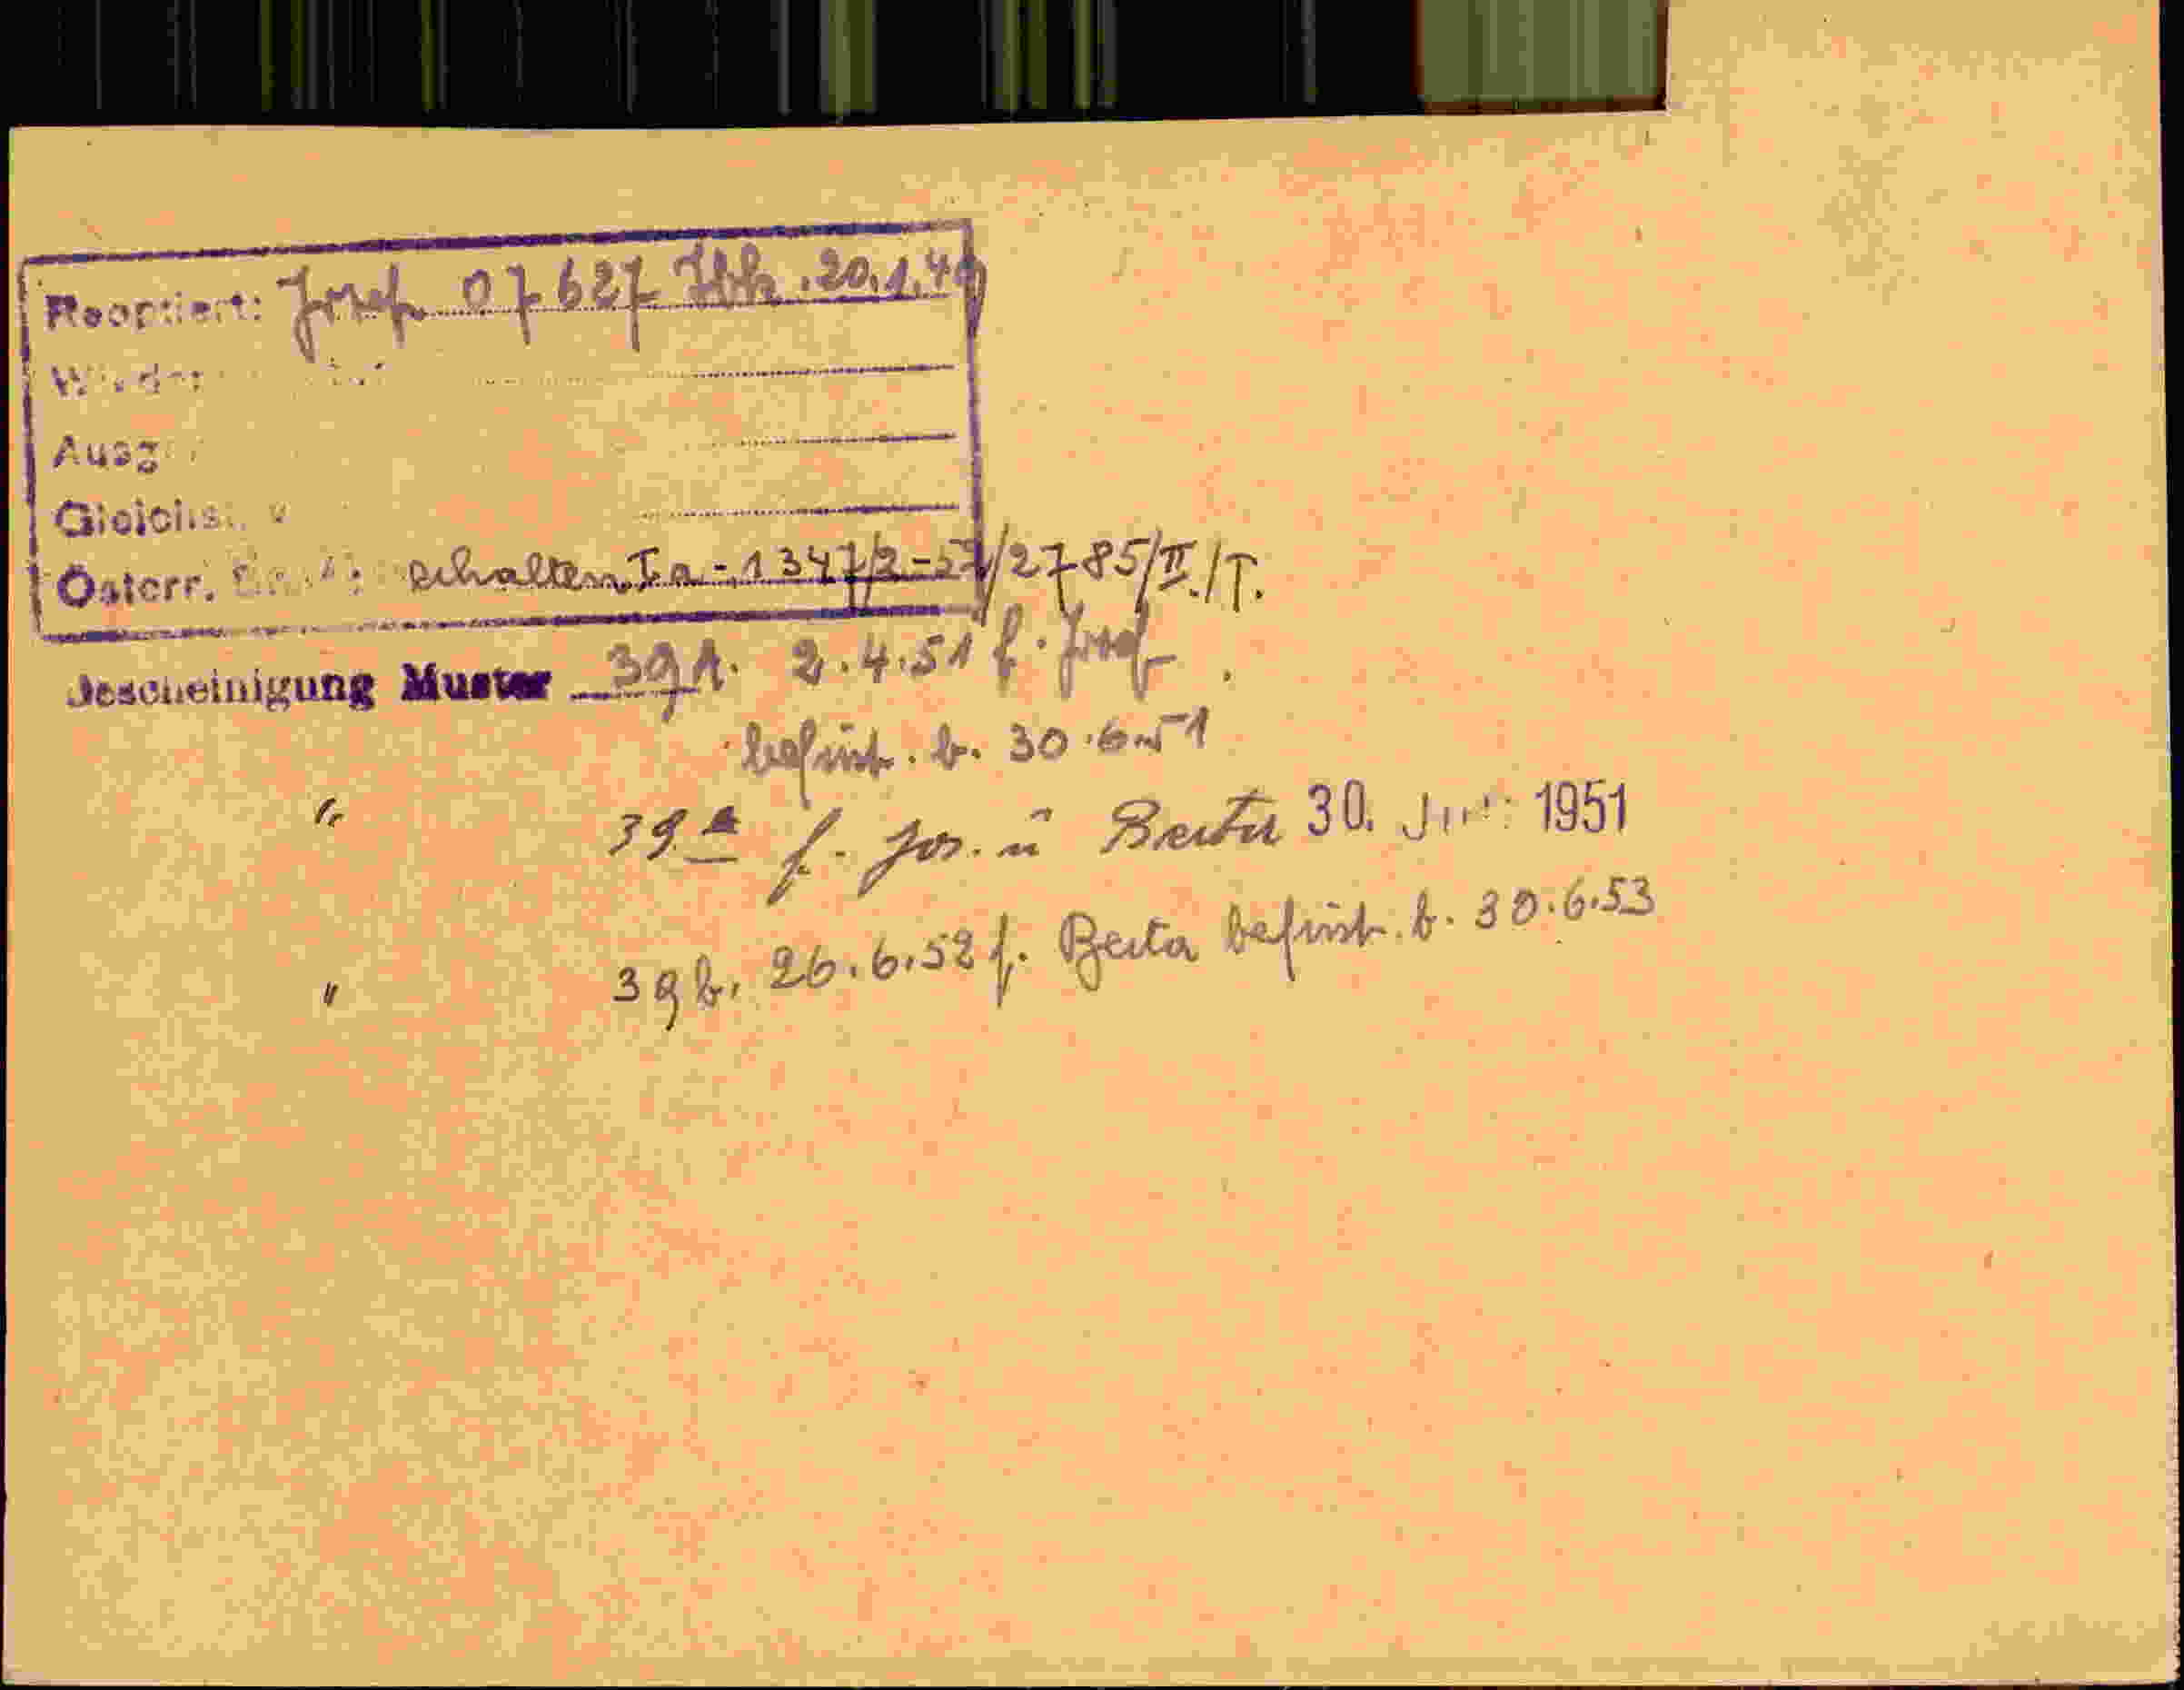 Reoptiert: Josef 07627 Ibk. 20.1.49
Wieder
Ausg
Gleichst.
Österr. erhalten Ia-1347/2-57/2785/II./T.
Bescheinigung Muster 39A. 2.4.51 f. Josef
befrist. b. 30.6.51
" 39 a f. Jos. u Berta 30. Juni 1951
" 39b. 26.6.52 f. Berta befrist. b. 30.6.53